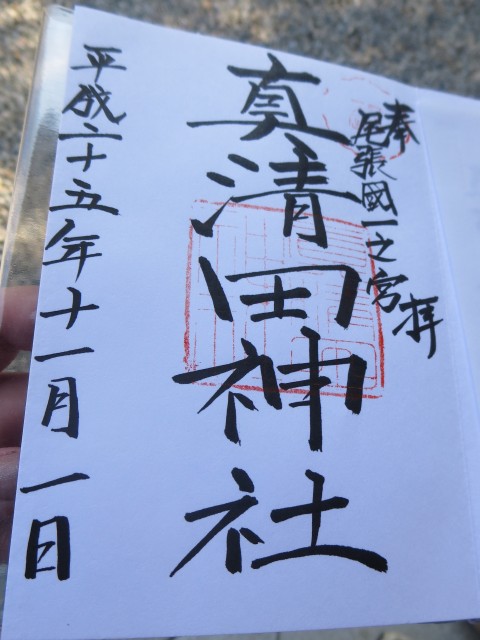 奉拝
尾張國一之宮
真清田神社
平成二十五年十一月一日